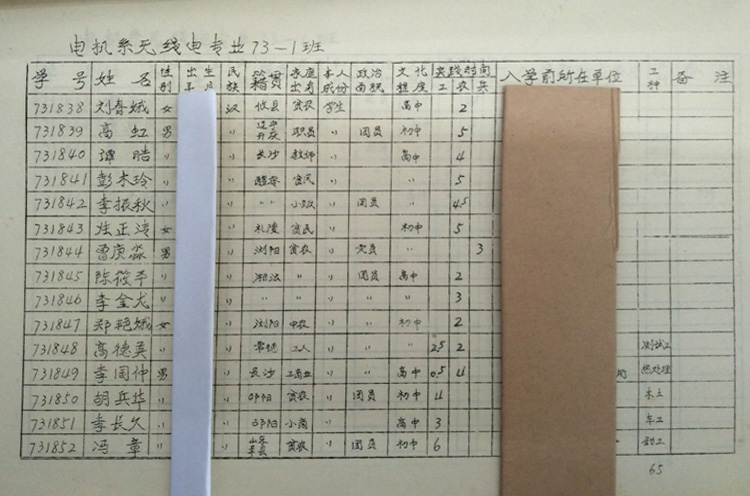 电机系无线电专业73-1班
学号 姓名 性别 出生 民族 籍贯 家庭出身 本人成份 政治面貌 文化程度 实践时间 工 农 兵 入学前所在单位 工种 备注
731838 刘春娥 女 汉 攸县 贫农 学生 高中 2
731839 高虹 男 〃 辽宁 职员 〃 团员 初中 5
731840 谭晧 〃 〃 长沙 教师 高中 4
731841 彭木玲 〃 〃 贫民 5
731842 李振秋 〃 〃 〃 小贩 团员 4.5
731843 正 女 〃 礼陵 贫民 初中 5
731844 曹庚淼 男 〃 浏阳 贫农 党员 3
731845 陈筱平 〃 〃 〃 团员 高中 2
731846 李金 〃 〃 〃 〃 〃 〃 3
731847 郑艳娥 女 〃 浏阳 中农 〃 初中 2
731848 高德英 〃 〃 常德 工人 〃 〃 2.5 2 测试工
731849 李国仲 男 〃 长沙 工商业 〃 高中 0.5 4 热处理
731850 胡兵华 〃 〃 邵阳 贫农 团员 初中 4 木工
731851 李长久 〃 〃 邵阳 小商 高中 3 车工
731852 冯章 〃 〃 山东 贫农 团员 初中 6 钳工
65